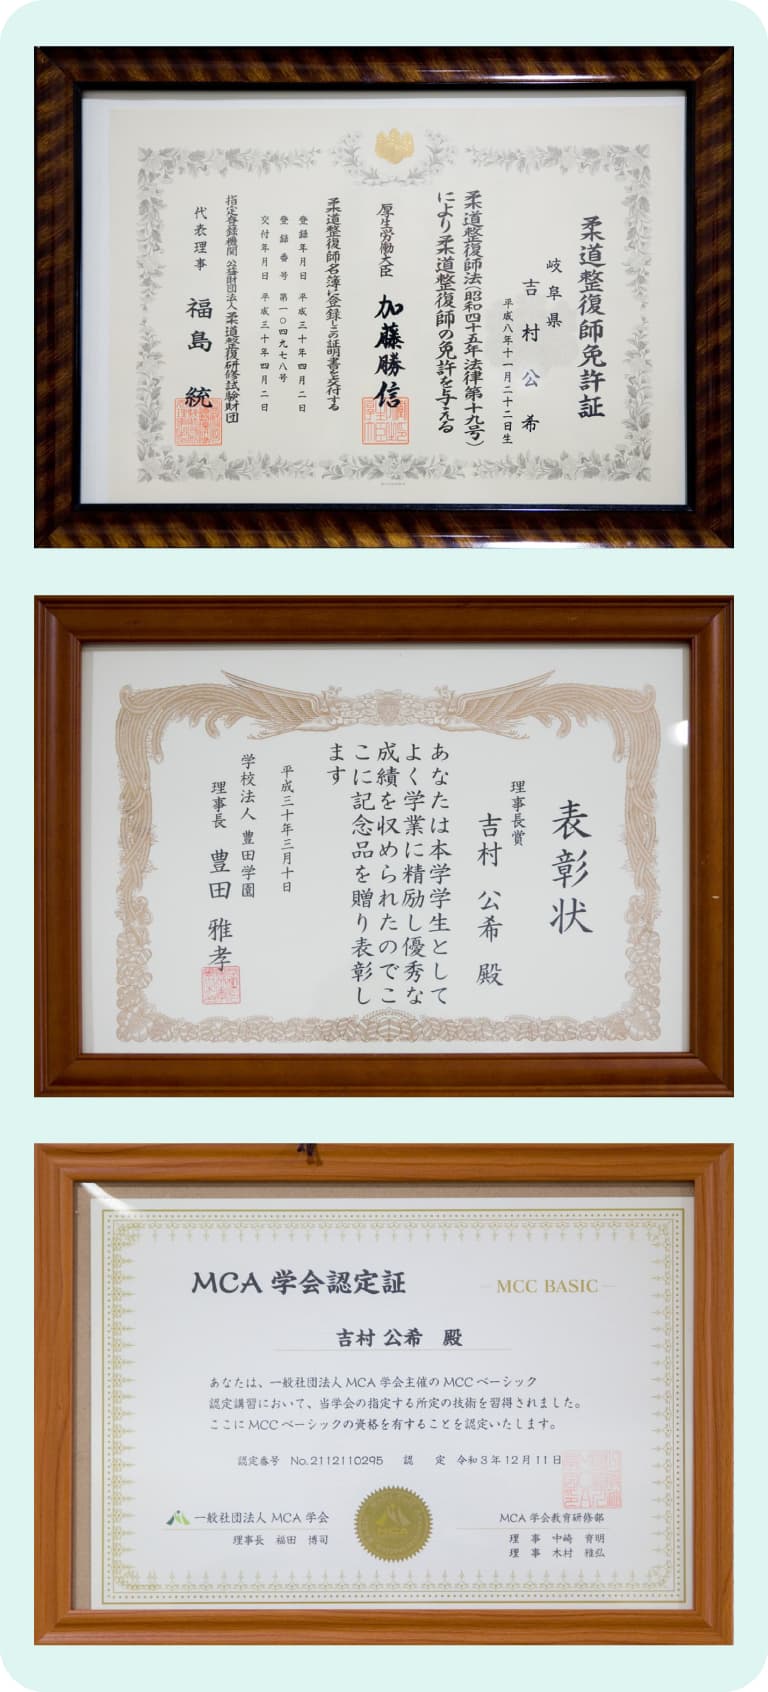 柔道整復師免許証
岐阜県
吉村公希
平成八年十一月二十二日生
柔道整復師法(昭和四十五年法律第十九号)
により柔道整復師の免許を与える
厚生労働大臣 加藤勝信
柔道整復師名簿に登録しこの証明書を交付する
登録年月日 平成三十年四月二日
登録番号 第一〇四九七八号
交付年月日 平成三十年四月二日
指定登録機関 公益財団法人柔道整復研修試験財団
代表理事 福島統
表彰状
理事長賞
吉村 公希 殿
あなたは本学学生として
よく学業に精励し優秀な
成績を収められたのでこ
こに記念品を贈り表彰し
ます
平成三十年三月十日
学校法人 豊田学園
理事長 豊田 雅孝
MCA 学会認定証
MCC BASIC
吉村 公希 殿
あなたは、一般社団法人 MCA 学会主催の MCC ベーシック
認定講習において、当学会の指定する所定の技術を習得されました。
ここに MCC ベーシックの資格を有することを認定いたします。
認定番号 No.2112110295 認 定 令和3年12月11日
一般社団法人 MCA 学会
理事長 福田 博司
MCA
MCA 学会教育研修部
理 事 中崎 育明
理 事 木村 雅弘